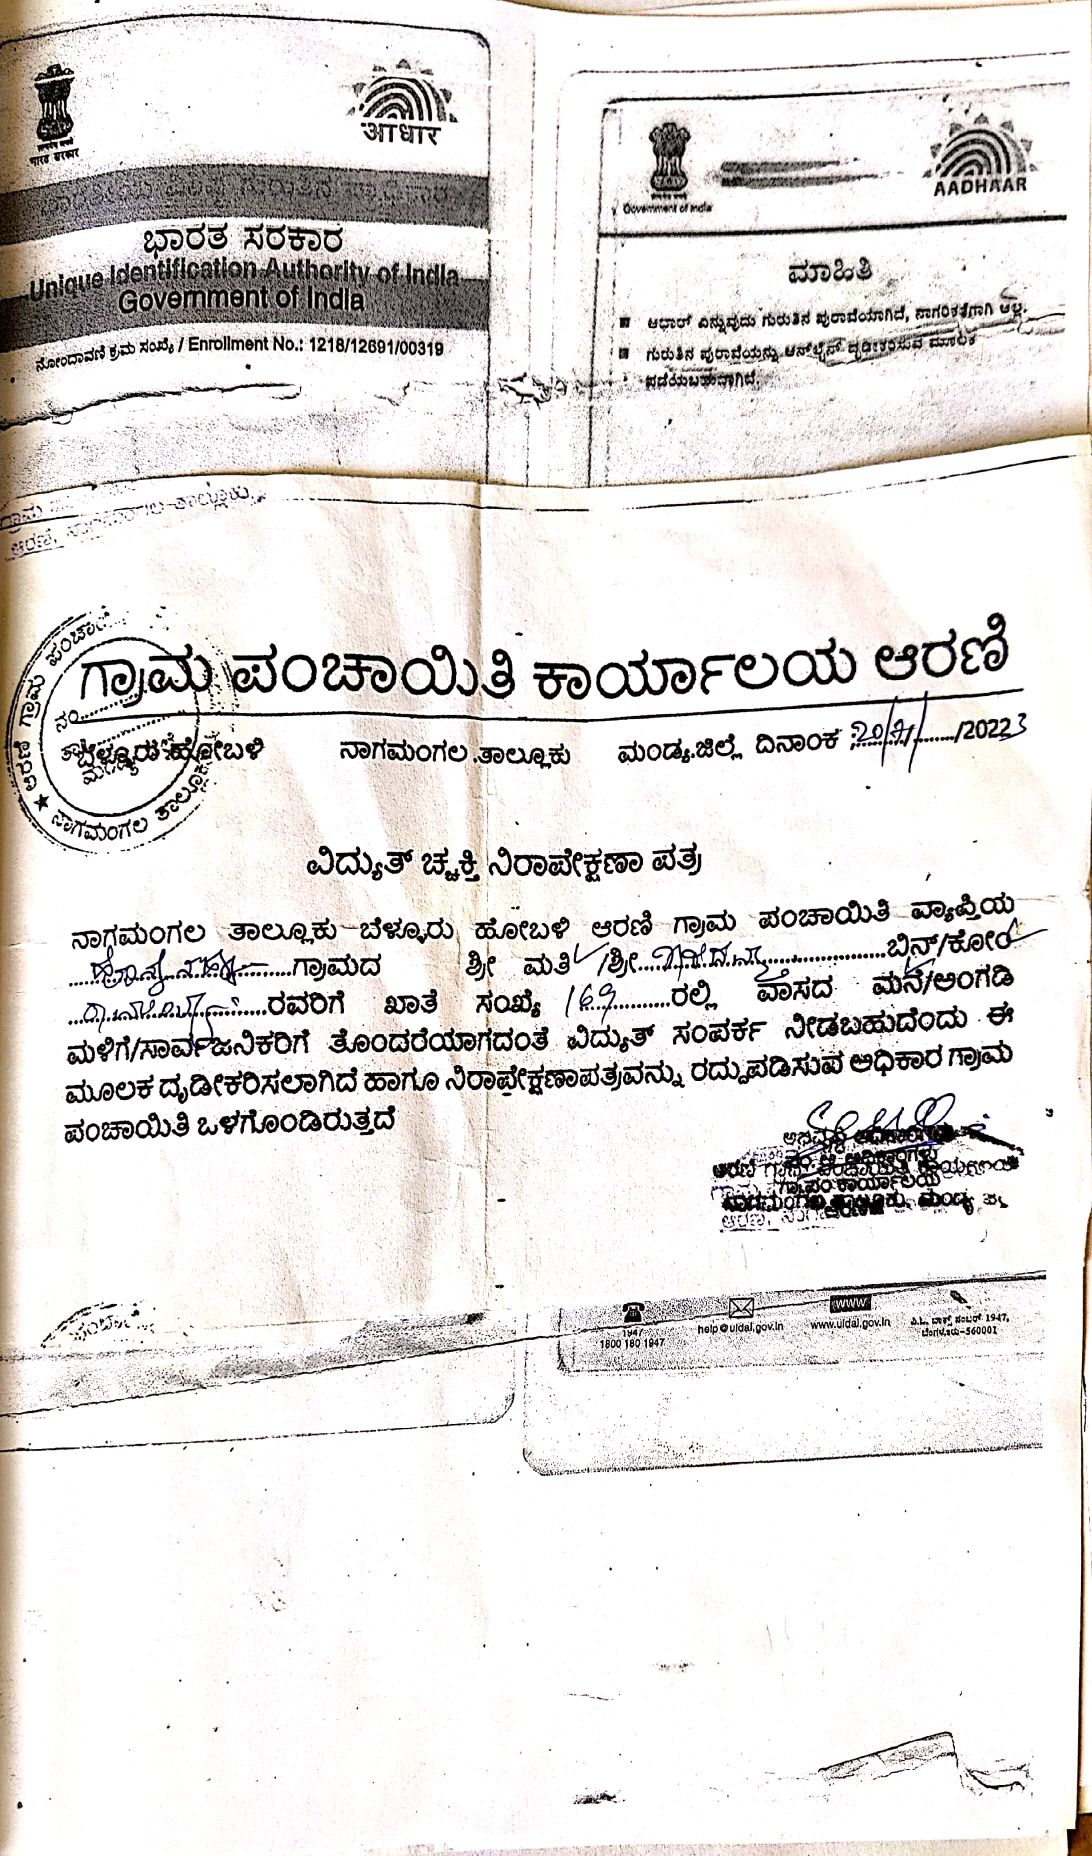 आधार
भारत सरकार
ಭಾರತ ಸರಕಾರ
Unique Identification Authority of India
Government of India
ನೋಂದಾವಣಿ ಕ್ರಮ ಸಂಖ್ಯೆ / Enrollment No.: 1218/12691/00319
Government of India
AADHAAR
ಮಾಹಿತಿ
ಆಧಾರ್ ಎನ್ನುವುದು ಗುರುತಿನ ಪುರಾವೆಯಾಗಿದೆ, ನಾಗರಿಕತೆಗಾಗಿ ಅಲ್ಲ.
ಗುರುತಿನ ಪುರಾವೆಯನ್ನು ಆನ್‌ಲೈನ್ ದೃಢೀಕರಿಸುವ ಮೂಲಕ
ಪಡೆಯಬಹುದಾಗಿದೆ.
ಗ್ರಾಮ
ಆರಣಿ, ನಾಗಮಂಗಲ ತಾಲ್ಲೂಕು.
ಆರಣಿ ಗ್ರಾಮ ಪಂಚಾ
ನಾಗಮಂಗಲ ತಾಲ್ಲೂಕು
ಗ್ರಾಮ ಪಂಚಾಯಿತಿ ಕಾರ್ಯಾಲಯ ಆರಣಿ
ಬೆಳ್ಳೂರು ಹೋಬಳಿ ನಾಗಮಂಗಲ ತಾಲ್ಲೂಕು ಮಂಡ್ಯ.ಜಿಲ್ಲೆ ದಿನಾಂಕ /2022 3
ವಿದ್ಯುತ್ ಚ್ಚಕ್ತಿ ನಿರಾಪೇಕ್ಷಣಾ ಪತ್ರ
ನಾಗಮಂಗಲ ತಾಲ್ಲೂಕು ಬೆಳ್ಳೂರು ಹೋಬಳಿ ಆರಣಿ ಗ್ರಾಮ ಪಂಚಾಯಿತಿ ವ್ಯಾಪ್ತಿಯ
ಗ್ರಾಮದ ಶ್ರೀ ಮತಿ /ಶ್ರೀ ಬಿನ್/ಕೋಂ
ರವರಿಗೆ ಖಾತೆ ಸಂಖ್ಯೆ 169 ರಲ್ಲಿ ವಾಸದ ಮನೆ/ಅಂಗಡಿ
ಮಳಿಗೆ/ಸಾರ್ವಜನಿಕರಿಗೆ ತೊಂದರೆಯಾಗದಂತೆ ವಿದ್ಯುತ್ ಸಂಪರ್ಕ ನೀಡಬಹುದೆಂದು ಈ
ಮೂಲಕ ದೃಡೀಕರಿಸಲಾಗಿದೆ ಹಾಗೂ ನಿರಾಪೇಕ್ಷಣಾಪತ್ರವನ್ನು ರದ್ದುಪಡಿಸುವ ಅಧಿಕಾರ ಗ್ರಾಮ
ಪಂಚಾಯಿತಿ ಒಳಗೊಂಡಿರುತ್ತದೆ
1947
1800 180 1947
help@uidai.gov.in
www
www.uidai.gov.in
ಪಿ.ಓ. ಬಾಕ್ಸ್ ನಂಬರ್ 1947,
ಬೆಂಗಳೂರು-560001